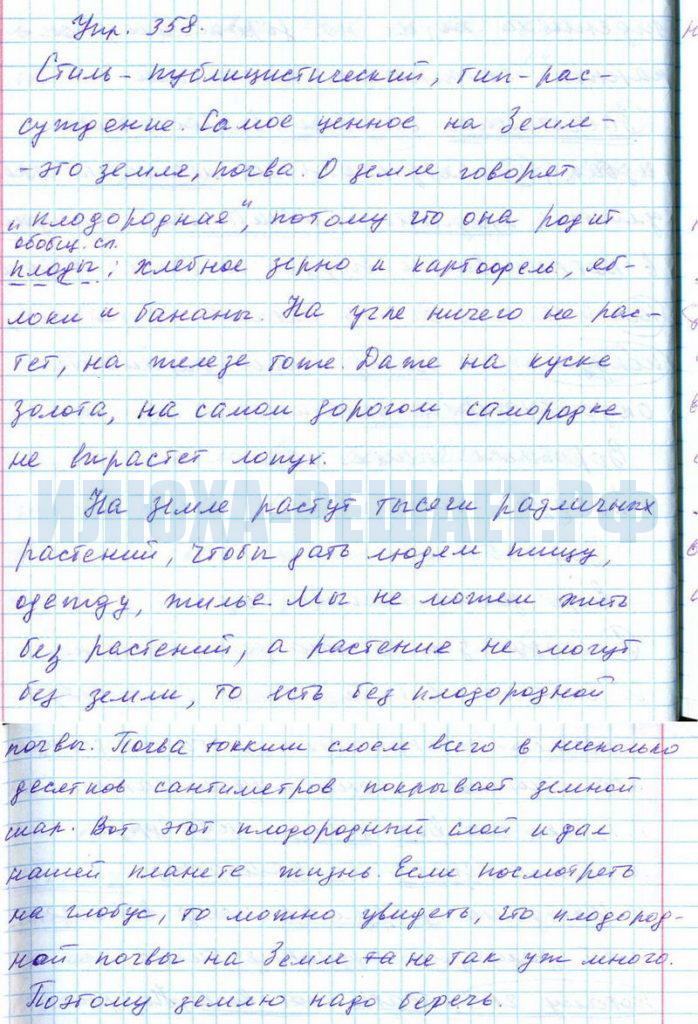 Упр. 358.
Стиль - публицистический, тип - рас-
суждение. Самое ценное на Земле -
- это земля, почва. О земле говорят
„плодородная“, потому что она родит
обобщ. сл.
плоды: хлебное зерно и картофель, яб-
локи и бананы. На угле ничего не рас-
тет, на железе тоже. Даже на куске
золота, на самом дорогом самородке
не вырастет лопух.
ИЛЮХА-РЕШАЕТ.РФ
На земле растут тысячи различных
растений, чтобы дать людям пищу,
одежду, жилье. Мы не можем жить
без растений, а растение не могут
без земли, то есть без плодородной
почвы. Почва тонким слоем всего в несколько
десятков сантиметров покрывает земной
шар. Вот этот плодородный слой и дал
нашей планете жизнь. Если посмотреть
на глобус, то можно увидеть, что плодород-
ной почвы на Земле та не так уж много.
Поэтому землю надо беречь.